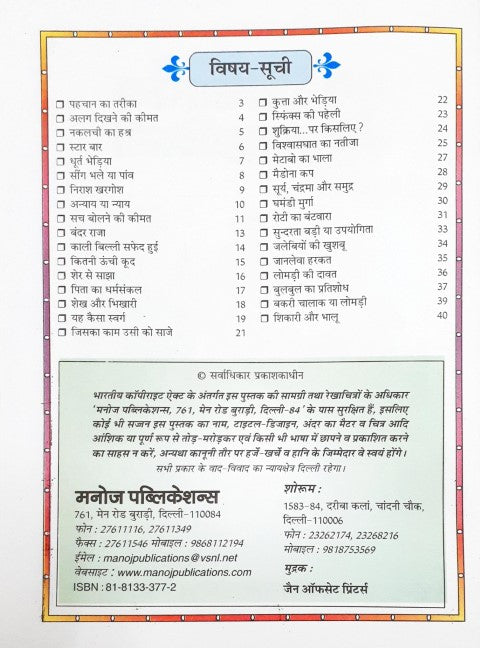 विषय-सूची
❐ पहचान का तरीका 3
❐ अलग दिखने की कीमत 4
❐ नकलची का हश्र 5
❐ स्टार बार 6
❐ धूर्त भेड़िया 7
❐ सींग भले या पांव 8
❐ निराश खरगोश 9
❐ अन्याय या न्याय 10
❐ सच बोलने की कीमत 11
❐ बंदर राजा 13
❐ काली बिल्ली सफेद हुई 14
❐ कितनी ऊंची कूद 15
❐ शेर से साझा 16
❐ पिता का धर्मसंकल 17
❐ शेख और भिखारी 18
❐ यह कैसा स्वर्ग 19
❐ जिसका काम उसी को साजे 21
❐ कुत्ता और भेड़िया 22
❐ स्फिंक्स की पहेली 23
❐ शुक्रिया...पर किसलिए ? 24
❐ विश्वासघात का नतीजा 25
❐ मेटाबो का भाला 27
❐ मैडोना कप 28
❐ सूर्य, चंद्रमा और समुद्र 29
❐ घमंडी मुर्गा 30
❐ रोटी का बंटवारा 31
❐ सुन्दरता बड़ी या उपयोगिता 33
❐ जलेबियों की खुशबू 34
❐ जानलेवा हरकत 35
❐ लोमड़ी की दावत 36
❐ बुलबुल का प्रतिशोध 37
❐ बकरी चालाक या लोमड़ी 39
❐ शिकारी और भालू 40
© सर्वाधिकार प्रकाशकाधीन
भारतीय कॉपीराइट ऐक्ट के अंतर्गत इस पुस्तक की सामग्री तथा रेखाचित्रों के अधिकार
'मनोज पब्लिकेशन्स, 761, मेन रोड बुराड़ी, दिल्ली-84' के पास सुरक्षित हैं, इसलिए
कोई भी सज्जन इस पुस्तक का नाम, टाइटल-डिजाइन, अंदर का मैटर व चित्र आदि
आंशिक या पूर्ण रूप से तोड़-मरोड़कर एवं किसी भी भाषा में छापने व प्रकाशित करने
का साहस न करें, अन्यथा कानूनी तौर पर हर्जे-खर्चे व हानि के जिम्मेदार वे स्वयं होंगे।
सभी प्रकार के वाद-विवाद का न्यायक्षेत्र दिल्ली रहेगा।
मनोज पब्लिकेशन्स
761, मेन रोड बुराड़ी, दिल्ली-110084
फोन : 27611116, 27611349
फैक्स : 27611546 मोबाइल : 9868112194
ईमेल : manojpublications@vsnl.net
वेबसाइट : www.manojpublications.com
ISBN : 81-8133-377-2
शोरूम :
1583-84, दरीबा कलां, चांदनी चौक,
दिल्ली-110006
फोन : 23262174, 23268216
मोबाइल : 9818753569
मुद्रक :
जैन ऑफसेट प्रिंटर्स